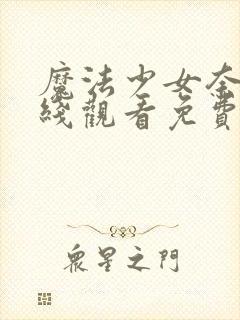 魔法少女奈
綫觀看免費
眾星之門